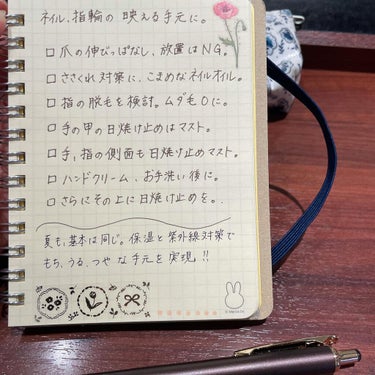 ネイル、指輪の映える手元に。
□ 爪の伸びっぱなし、放置はNG。
□ ささくれ対策に、こまめなネイルオイル。
□ 指の脱毛を検討。ムダ毛0に。
□ 手の甲の日焼け止めはマスト。
□ 手、指の側面も日焼け止めマスト。
□ ハンドクリーム、お手洗い後に。
□ さらにその上に日焼け止めを。
夏も、基本は同じ。保湿と紫外線対策で
もち、うる、つやな手元を実現!!